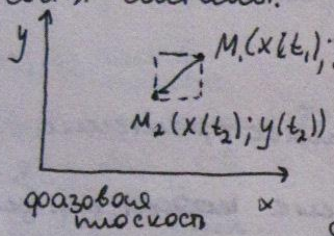 y
M₁(x(t₁);
M₂(x(t₂); y(t₂))
фазовая
плоскость
x